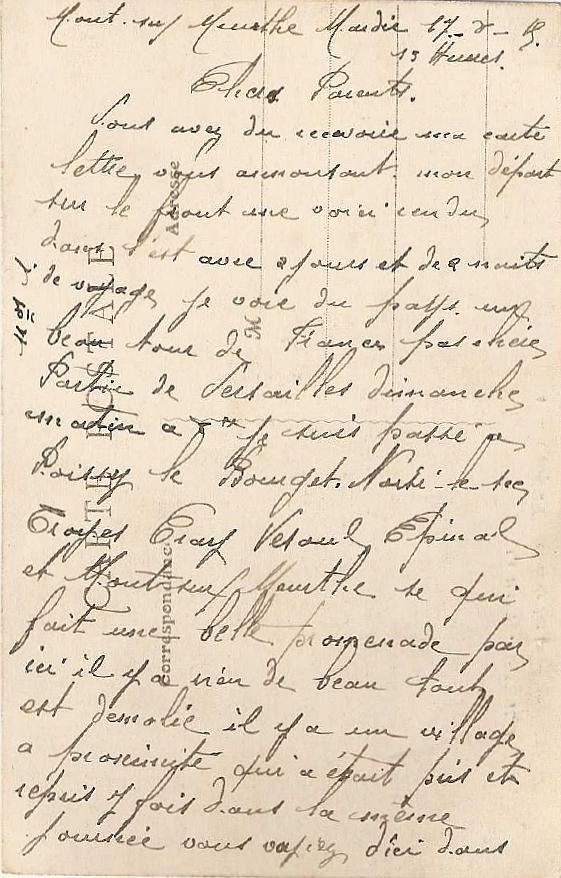 Mont sur Meurthe Mardi 17-8-15.
13 Heures.
Chers Parents.
Vous avez du recevoir ma carte
lettre vous annonsant mon départ
sur le front me voici rendu
dans l'est avec 2 jours et de 2 nuits
de voyage, je voie du pays. un
beau tour de France
Partie de Versailles dimanche
matin a je suis passé a
Poissy le Bourget. Noisi-le-sec
Troyes Gray Vesoul Epinal
et Mont sur Meurthe se qui
fait une belle promenade par
ici il y a rien de beau tout
est demolie il y a un village
a proximité qui a était pris et
repris 7 fois dans la même
journée vous voyez d'ici dans
CARTE POSTALE
Correspondance
Adresse
M